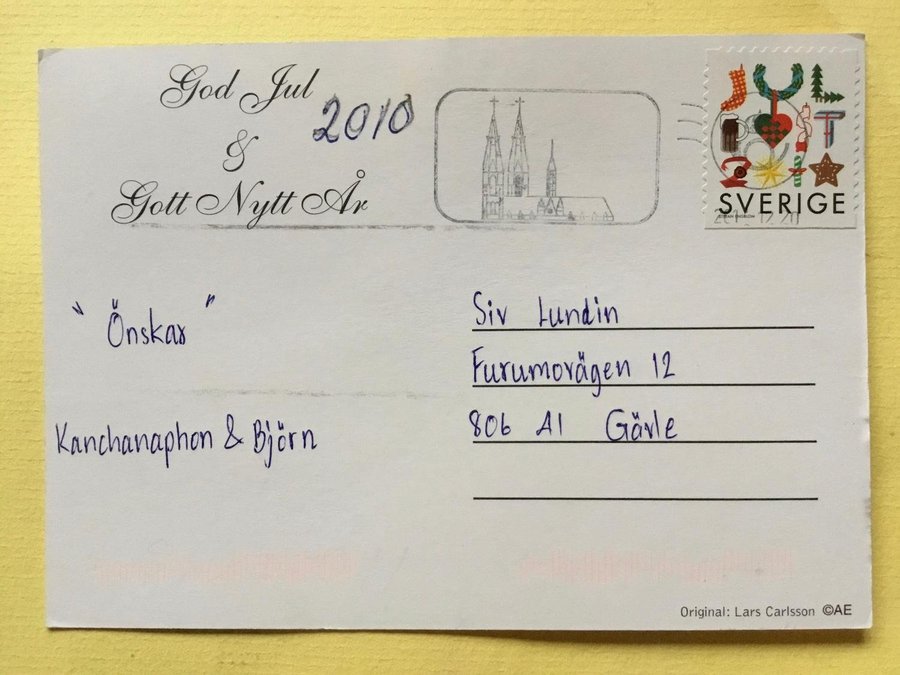 God Jul
2010
&
Gott Nytt År
SVERIGE
"Önskar"
Kanchanaphon & Björn
Siv Lundin
Furumovägen 12
806 41 Gävle
Original: Lars Carlsson ©AE